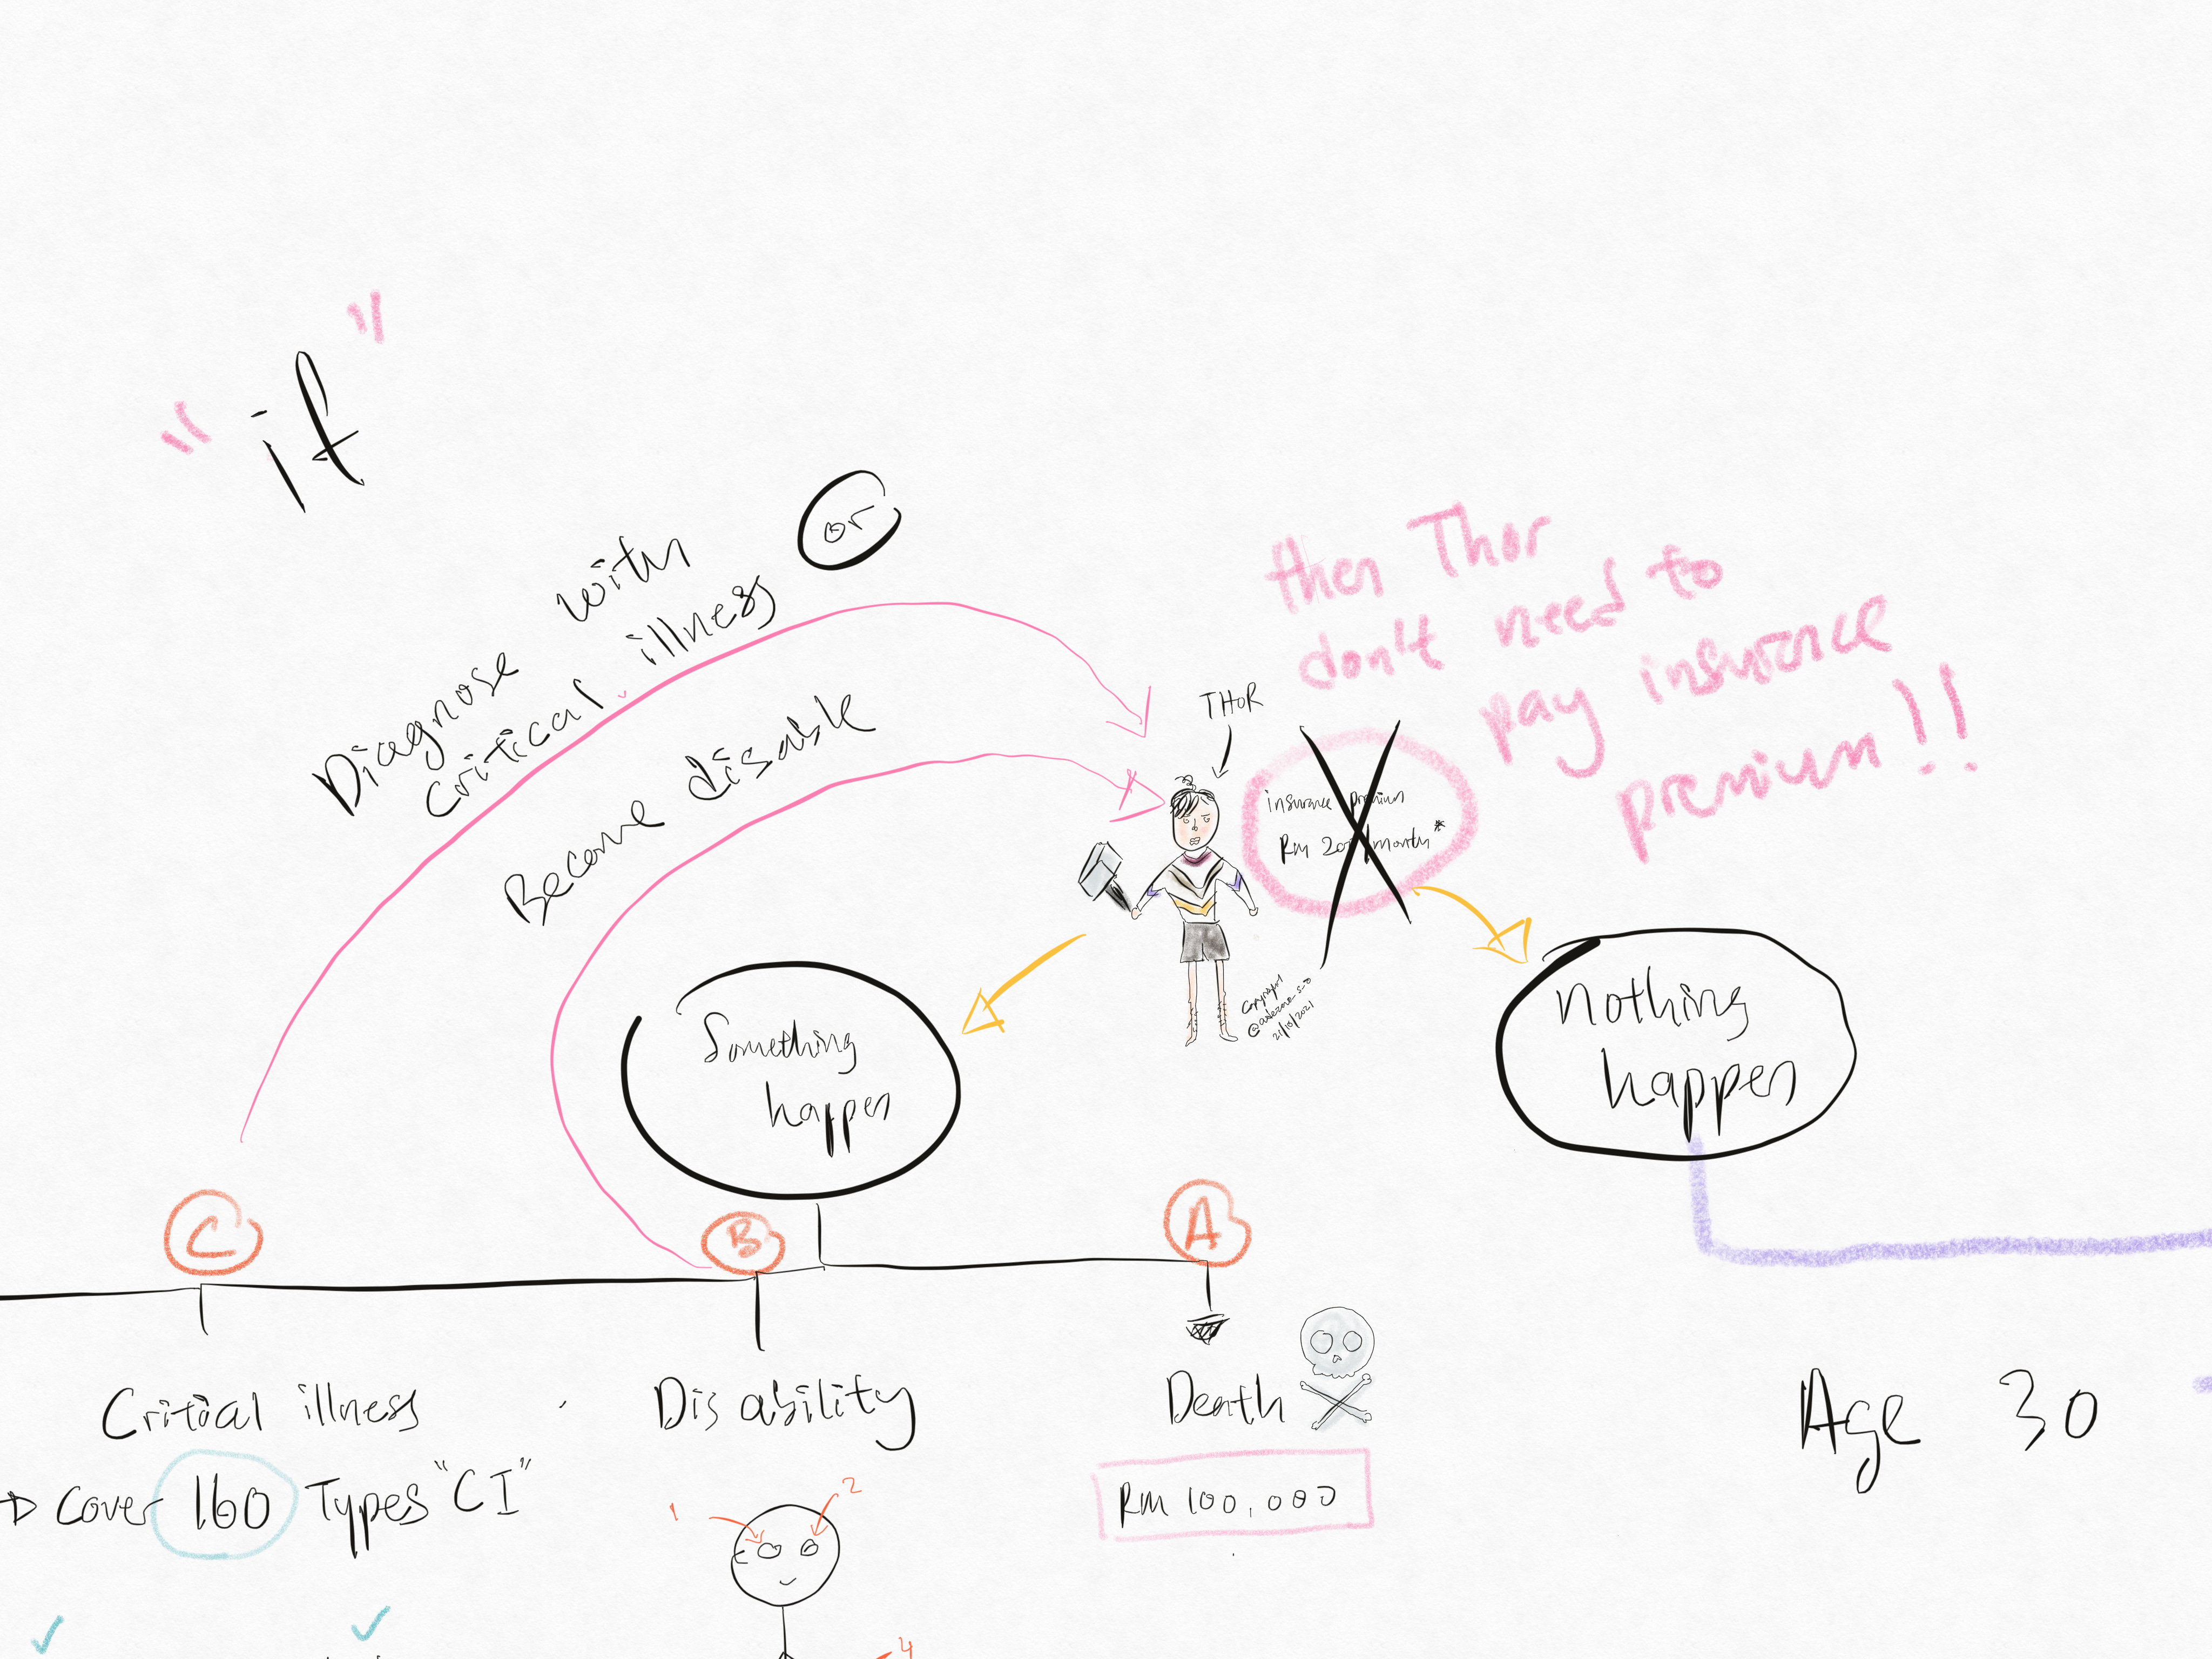 "if"
or
Diagnose with
critical illness
Become disable
then Thor
don't need to
pay insurance
premium!!
THOR
insurance premium
RM 200/month*
Copyright
21/10/2021
Something
happen
Nothing
happen
C
B
A
Critial illness
Disability
Death
Age 30
Cover 160 Types "CI"
RM 100,000
1
2
4